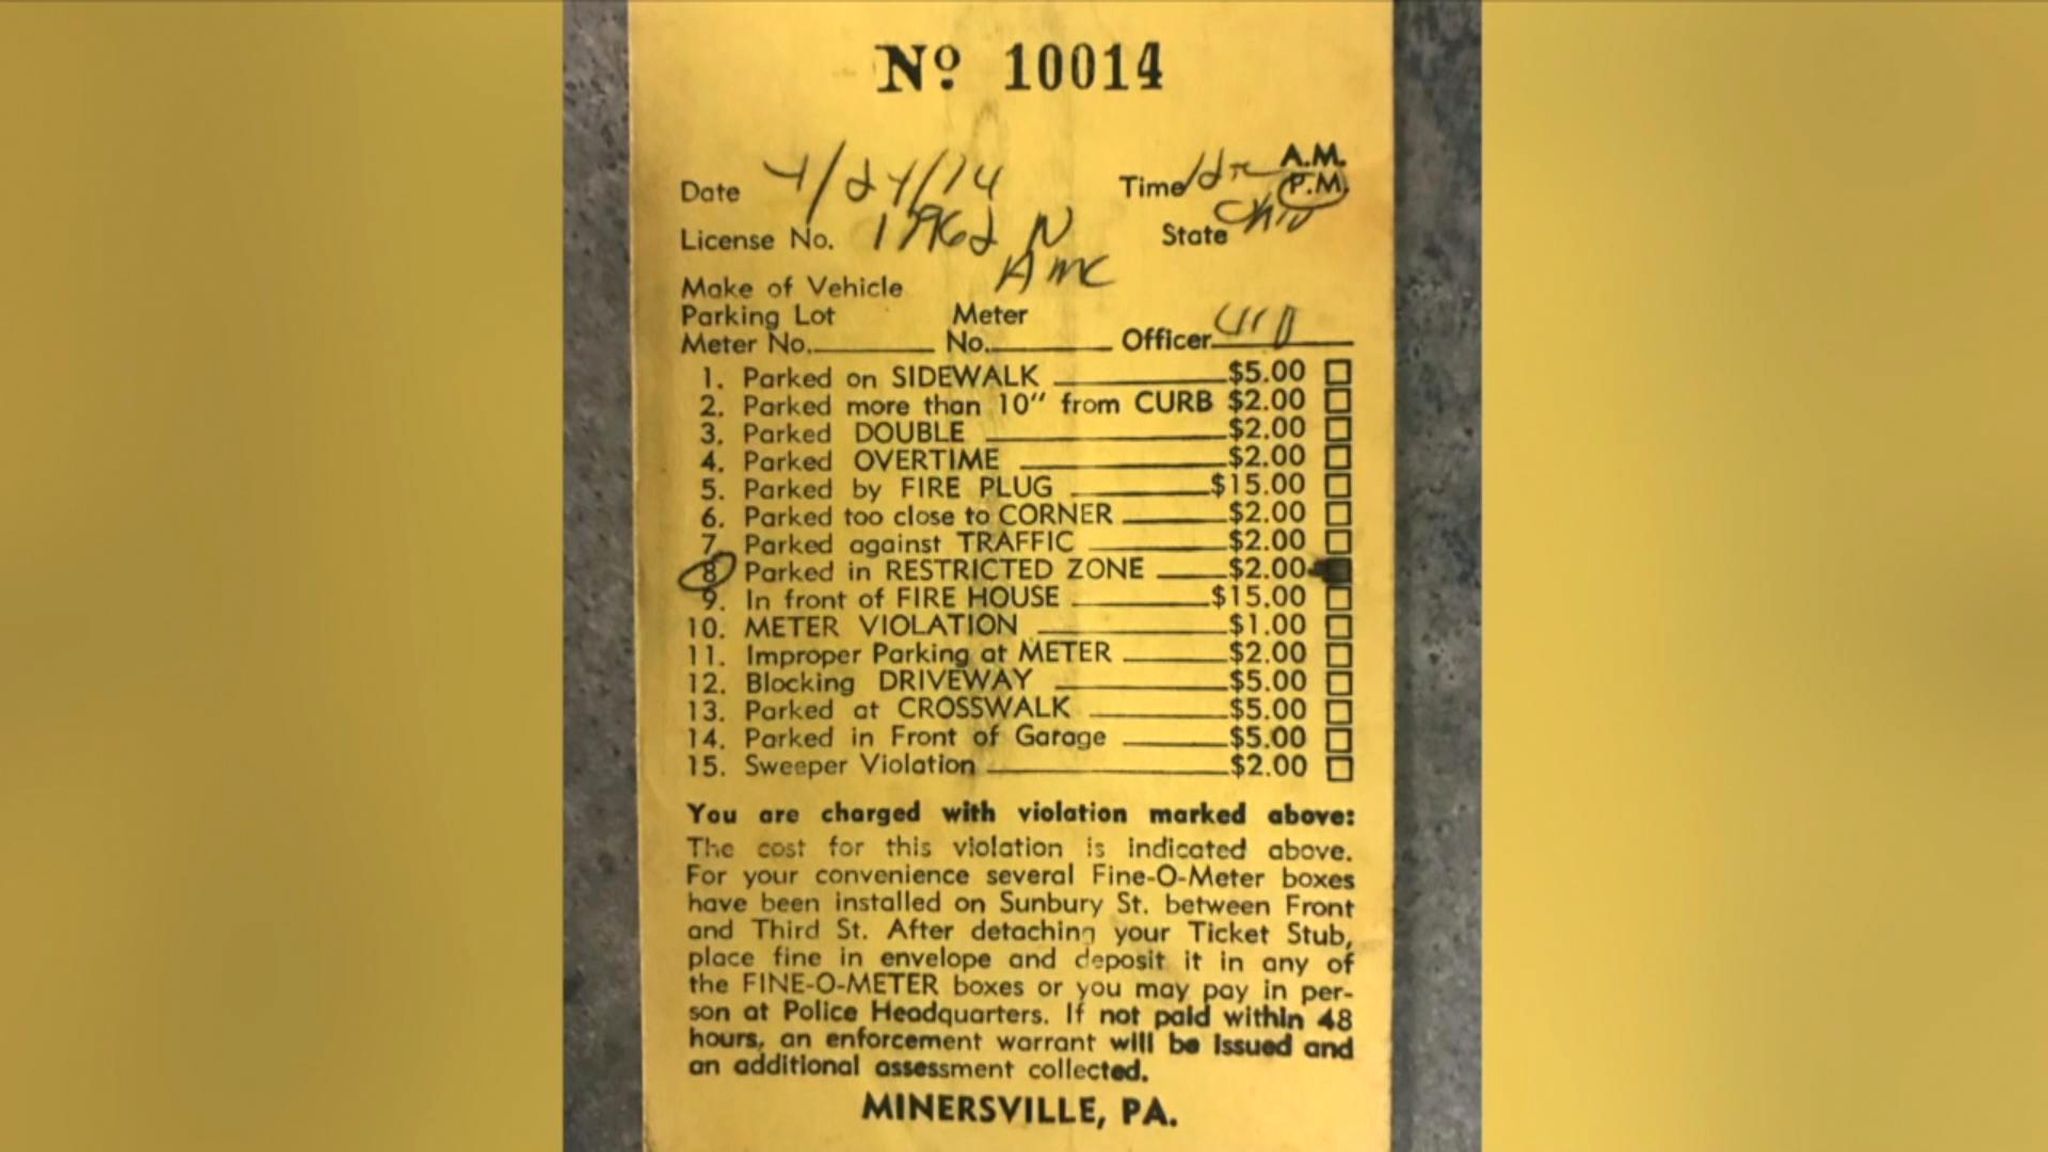 Nº 10014
Date 4/24/74 Time A.M.
P.M.
License No. 1962 N State Ohio
AMC
Make of Vehicle
Parking Lot Meter
Meter No. No. Officer
1. Parked on SIDEWALK $5.00
2. Parked more than 10" from CURB $2.00
3. Parked DOUBLE $2.00
4. Parked OVERTIME $2.00
5. Parked by FIRE PLUG $15.00
6. Parked too close to CORNER $2.00
7. Parked against TRAFFIC $2.00
8 Parked in RESTRICTED ZONE $2.00
9. In front of FIRE HOUSE $15.00
10. METER VIOLATION $1.00
11. Improper Parking at METER $2.00
12. Blocking DRIVEWAY $5.00
13. Parked at CROSSWALK $5.00
14. Parked in Front of Garage $5.00
15. Sweeper Violation $2.00
You are charged with violation marked above:
The cost for this violation is indicated above.
For your convenience several Fine-O-Meter boxes
have been installed on Sunbury St. between Front
and Third St. After detaching your Ticket Stub,
place fine in envelope and deposit it in any of
the FINE-O-METER boxes or you may pay in per-
son at Police Headquarters. If not paid within 48
hours, an enforcement warrant will be issued and
an additional assessment collected.
MINERSVILLE, PA.